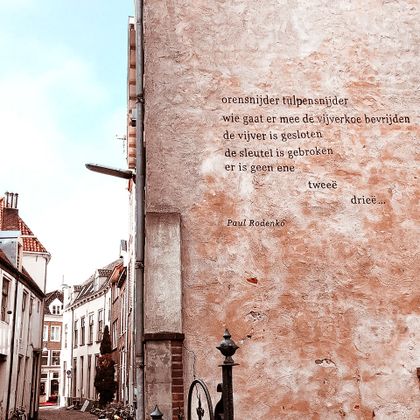 orensnijder tulpensnijder
wie gaat er mee de vijverkoe bevrijden
de vijver is gesloten
de sleutel is gebroken
er is geen ene
tweeë
drieë...
Paul Rodenko